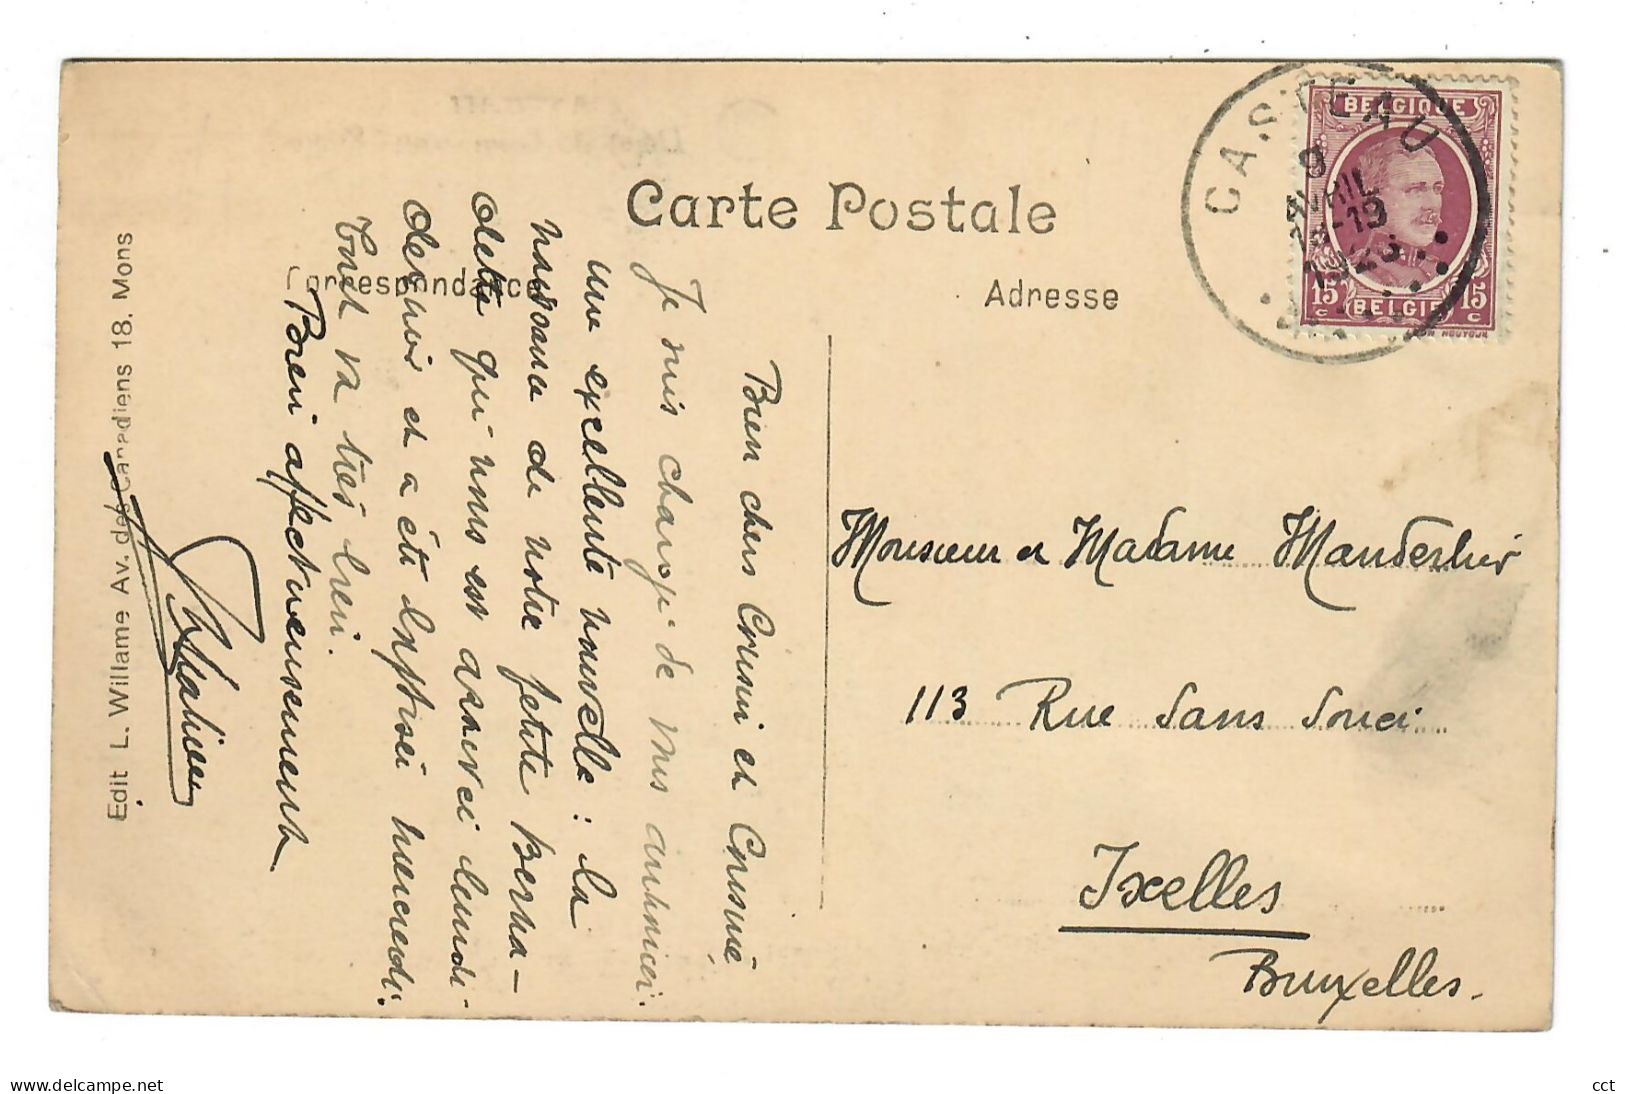 Carte Postale
Correspondance
Adresse
CASTEAU
9
AVRIL
-19
192
BELGIQUE
15 15
c BELGIË c
Bien chers Cousin et Cousine
Je suis chargé de vous annoncer
une excellente nouvelle : la
naissance de notre petite Berna-
dette qui nous est arrivée lundi
dernier et a été baptisée mercredi.
Tout va très bien.
Bien affectueusement
Edit L. Willame Av. des Canadiens 18. Mons
Monsieur et Madame
113 Rue Sans Souci
Ixelles
Bruxelles.
www.delcampe.net
cct